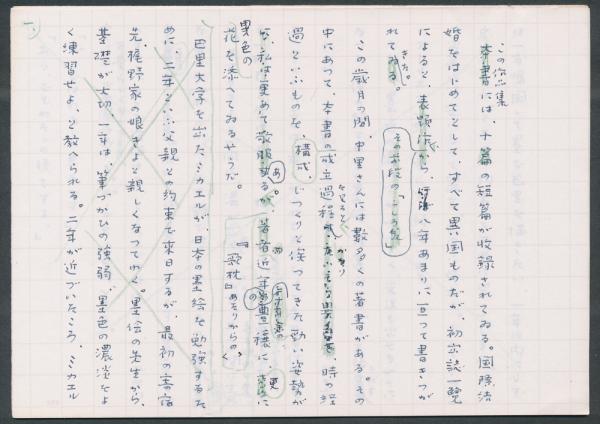 この作品集
本書には、十篇の短篇が収録されてゐる。国際結
婚をはじめとして、すべて異国ものだが、初出誌一覧
によると、表題作から、八年あまりに亘つて書きつが
れてゐる。
きた。
この歳月の間、中里さんには数多くの著書がある。その
中にあつて、本書の成立過程 時の経
過といふものを、構成、じつくりと俟つてきた勁い姿勢が
私は改めて敬服するが、著者近年の 豊穣に、更に
花を添へてゐるやうだ。
異色の
『歌枕』あたりからの
巴里大学を出たミカエルが、日本の墨絵を勉強するた
めに、二年といふ父親との約束で来日するが、最初の寄宿
先、梶野家の娘きよと親しくなつてゆく。墨絵の先生から、
基礎が大切、一年は、筆づかひの強弱、墨色の濃淡をよ
く練習せよ、と教へられる。二年が近づいたころ、ミカエル